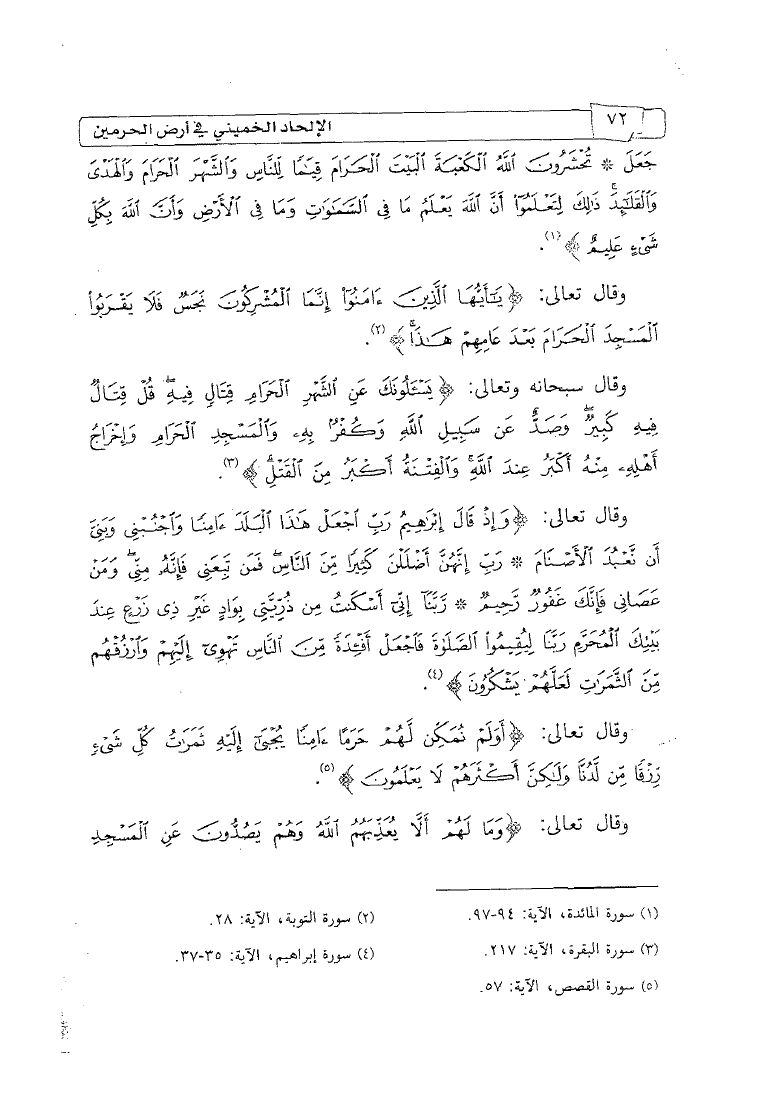 ٧٢
الإلحاد الخميني في أرض الحرمين
جَعَلَ * تُحْشَرُونَ اللَّهُ الْكَعْبَةَ الْبَيْتَ الْحَرَامَ قِيَامًا لِّلنَّاسِ وَالشَّهْرَ الْحَرَامَ وَالْهَدْيَ
وَالْقَلَائِدَ ذَلِكَ لِتَعْلَمُوا أَنَّ اللَّهَ يَعْلَمُ مَا فِي السَّمَاوَاتِ وَمَا فِي الْأَرْضِ وَأَنَّ اللَّهَ بِكُلِّ
شَيْءٍ عَلِيمٌ ﴾(١).
وقال تعالى: ﴿ يَا أَيُّهَا الَّذِينَ ءَامَنُوا إِنَّمَا الْمُشْرِكُونَ نَجَسٌ فَلَا يَقْرَبُوا
الْمَسْجِدَ الْحَرَامَ بَعْدَ عَامِهِمْ هَذَا ﴾(٢).
وقال سبحانه وتعالى: ﴿ يَسْئَلُونَكَ عَنِ الشَّهْرِ الْحَرَامِ قِتَالٍ فِيهِ قُلْ قِتَالٌ
فِيهِ كَبِيرٌ وَصَدٌّ عَن سَبِيلِ اللَّهِ وَكُفْرٌ بِهِ وَالْمَسْجِدِ الْحَرَامِ وَإِخْرَاجُ
أَهْلِهِ مِنْهُ أَكْبَرُ عِندَ اللَّهِ وَالْفِتْنَةُ أَكْبَرُ مِنَ الْقَتْلِ ﴾(٣).
وقال تعالى: ﴿ وَإِذْ قَالَ إِبْرَاهِيمُ رَبِّ اجْعَلْ هَذَا الْبَلَدَ ءَامِنًا وَاجْنُبْنِي وَبَنِيَّ
أَن نَّعْبُدَ الْأَصْنَامَ * رَبِّ إِنَّهُنَّ أَضْلَلْنَ كَثِيرًا مِّنَ النَّاسِ فَمَن تَبِعَنِي فَإِنَّهُ مِنِّي وَمَنْ
عَصَانِي فَإِنَّكَ غَفُورٌ رَّحِيمٌ * رَّبَّنَا إِنِّي أَسْكَنتُ مِن ذُرِّيَّتِي بِوَادٍ غَيْرِ ذِي زَرْعٍ عِندَ
بَيْتِكَ الْمُحَرَّمِ رَبَّنَا لِيُقِيمُوا الصَّلَوٰةَ فَاجْعَلْ أَفْئِدَةً مِّنَ النَّاسِ تَهْوِي إِلَيْهِمْ وَارْزُقْهُم
مِّنَ الثَّمَرَاتِ لَعَلَّهُمْ يَشْكُرُونَ ﴾(٤).
وقال تعالى: ﴿ أَوَلَمْ نُمَكِّن لَّهُمْ حَرَمًا ءَامِنًا يُجْبَىٰ إِلَيْهِ ثَمَرَاتُ كُلِّ شَيْءٍ
رِّزْقًا مِّن لَّدُنَّا وَلَكِنَّ أَكْثَرَهُمْ لَا يَعْلَمُونَ ﴾(٥).
وقال تعالى: ﴿ وَمَا لَهُمْ أَلَّا يُعَذِّبَهُمُ اللَّهُ وَهُمْ يَصُدُّونَ عَنِ الْمَسْجِدِ
(١) سورة المائدة، الآية: ٩٤-٩٧.
(٢) سورة التوبة، الآية: ٢٨.
(٣) سورة البقرة، الآية: ٢١٧.
(٤) سورة إبراهيم، الآية: ٣٥-٣٧.
(٥) سورة القصص، الآية: ٥٧.